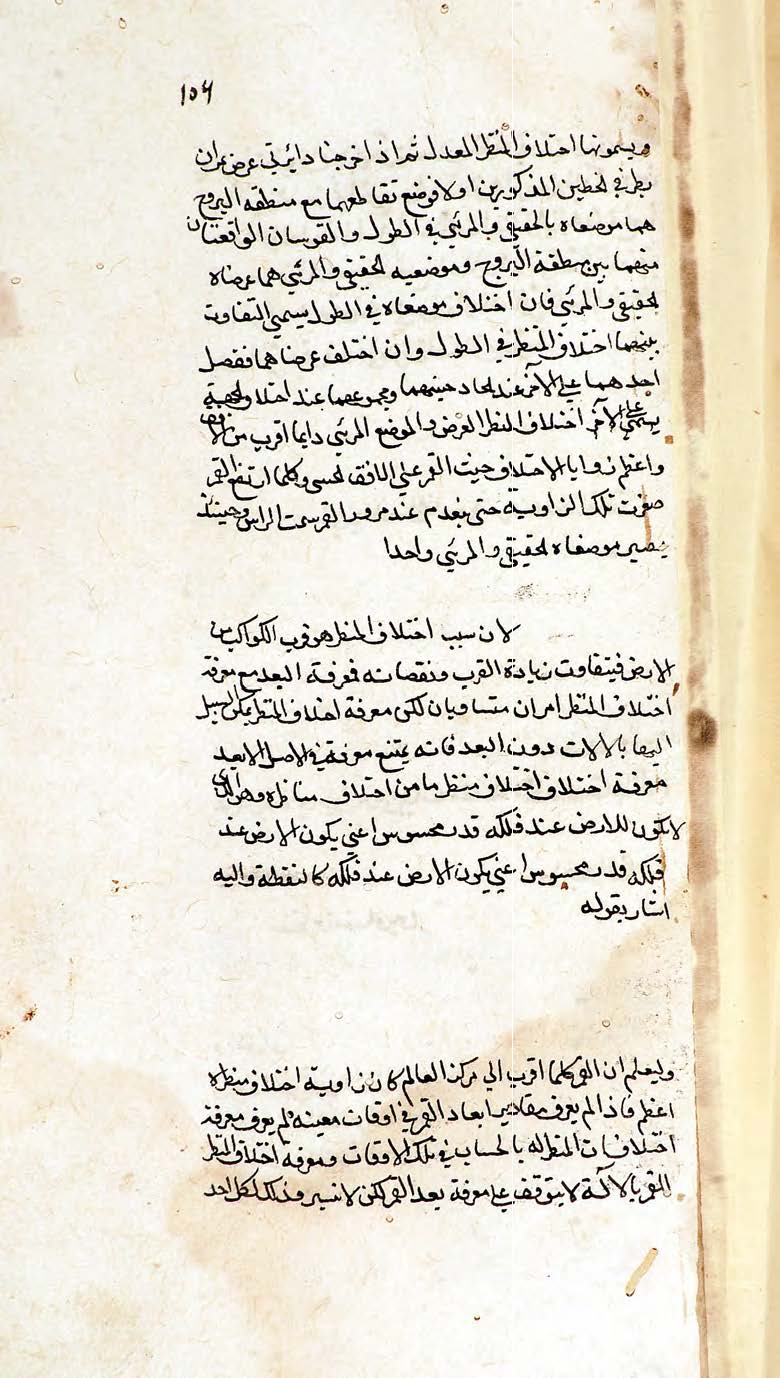 ١٥٦
ويسمونها اختلاف المنظر المعدل ثم اذا اخرجنا دايرتي عرض تمران
بطرفي الخطين المذكورين اولا فوضع تقاطعهما مع منطقة البروج
هما موضعاه بالحقيقي والمرئي في الطول والقوسان الواقعتان
منهما بين منطقة البروج وموضعيه الحقيقي والمرئي هما عرضاه
الحقيقي والمرئي فان اختلاف موضعاه في الطول يسمى التفاوت
بينهما اختلاف المنظر في الطول وان اختلف عرضاهما ففضل
احدهما على الاخر عند اتحاد جهتهما ومجموعهما عند اختلاف الجهة
يسمى اختلاف المنظر العرض والموضع المرئي دايما اقرب من الافق
على الاخر
واعظم زوايا الاختلاف حيث القمر على الافق الحسي وكلما ارتفع القمر
صغرت تلك الزاوية حتى ينعدم عند مرور القمر سمت الراس وحينئذ
يصير موضعاه الحقيقي والمرئي واحدا
لان سبب اختلاف المنظر هو قرب الكواكب من
الارض فيتفاوت بزيادة القرب ونقصانه فمعرفة البعد مع معرفة
اختلاف المنظر امران متساويان لكن معرفة اختلاف المنظر يمكن السبيل
اليها بالالات دون البعد فانه يمتنع معرفته في الاصل الا بعد
معرفة اختلاف اختلاف منظر ما من اختلاف مناظره وهو الذي
لا يكون للارض عند فلكه قدر محسوس اعني يكون الارض عند
فلكه قدر محسوس اعني يكون الارض عند فلكه كالنقطة واليه
اشار بقوله
وليعلم ان القمر كلما اقرب الى مركز العالم كان زاوية اختلاف منظره
اعظم فاذا لم يعرف مقادير ابعاد القمر في اوقات معينه لم يعرف معرفة
اختلافات المنظر له بالحساب في تلك الاوقات ومعرفة اختلاف المنظر
للقمر بالالة لا يتوقف على معرفة بعد القمر لكن لا تيسر وذلك لكل احد